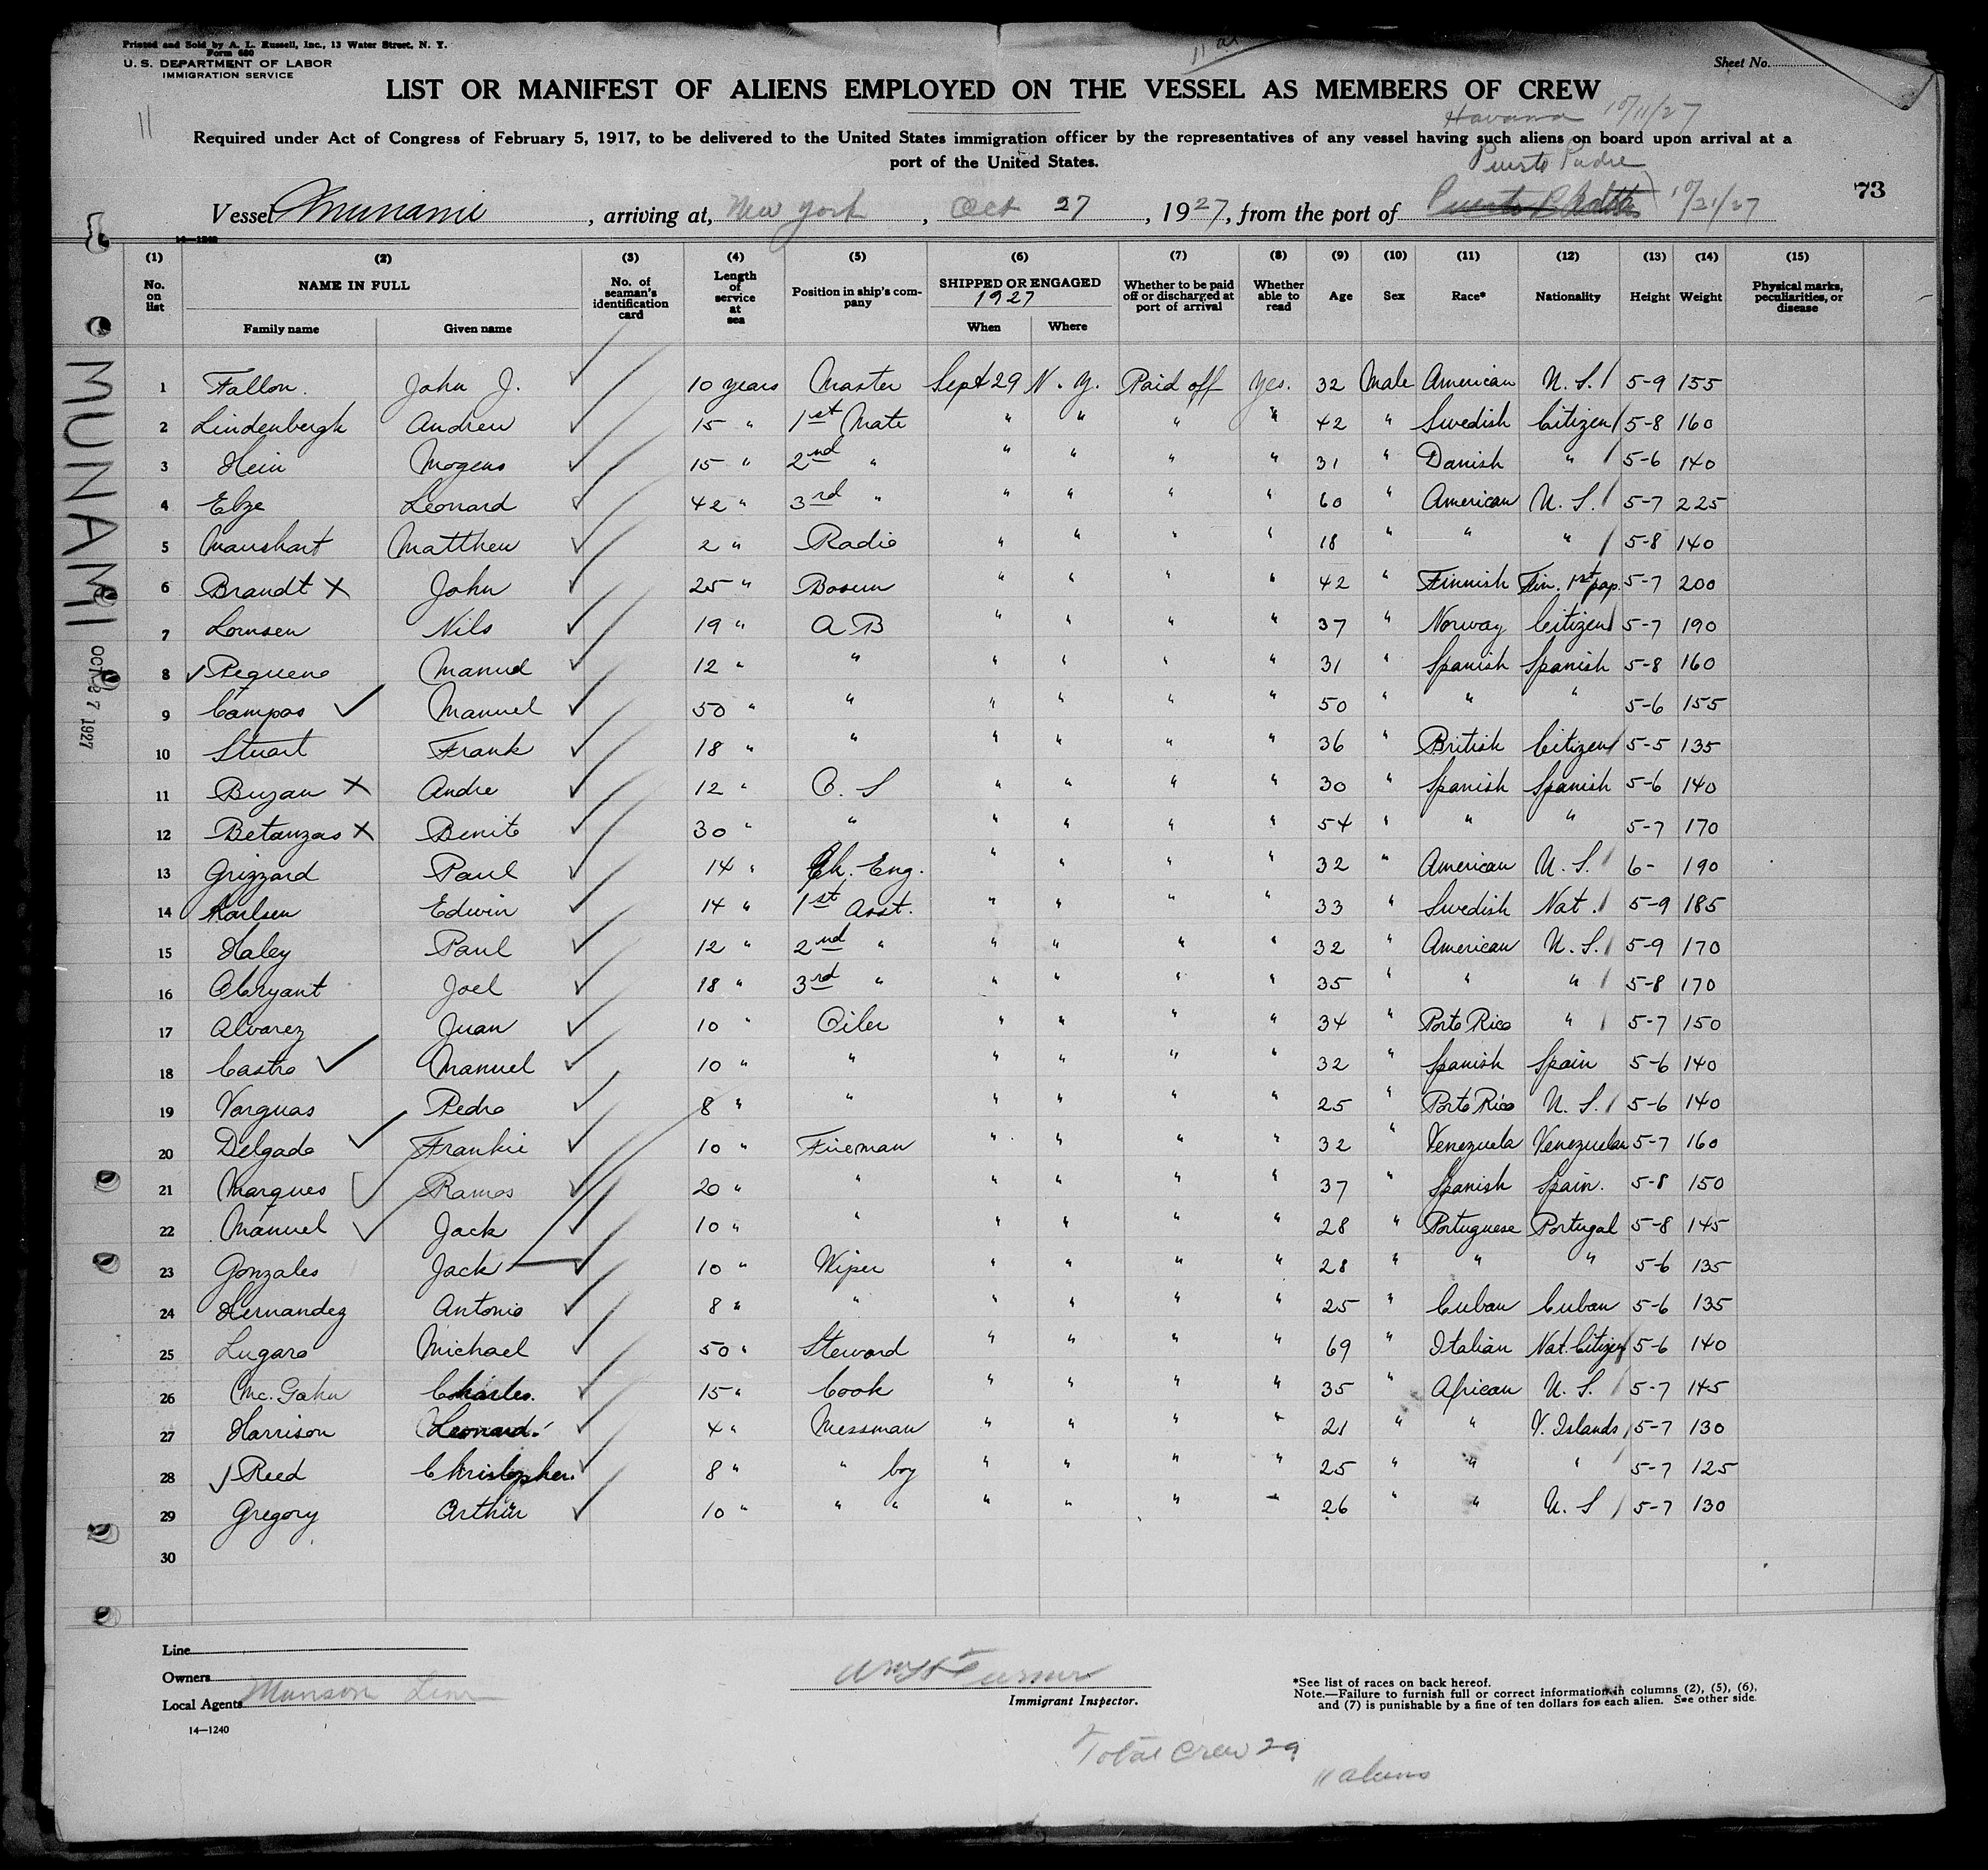 Printed and Sold by A. L. Russell, Inc., 13 Water Street, N. Y.
Form 680
U. S. DEPARTMENT OF LABOR
IMMIGRATION SERVICE
Sheet No.
LIST OR MANIFEST OF ALIENS EMPLOYED ON THE VESSEL AS MEMBERS OF CREW
11
Havana 10/11/27
Required under Act of Congress of February 5, 1917, to be delivered to the United States immigration officer by the representatives of any vessel having such aliens on board upon arrival at a
port of the United States.
Puerto Padre
Vessel Munami, arriving at, New York, Oct 27, 1927, from the port of 10/21/27
73
14—1240
(1) (2) (3) (4) (5) (6) (7) (8) (9) (10) (11) (12) (13) (14) (15)
No. on list NAME IN FULL Family name Given name No. of seaman's identification card Length of service at sea Position in ship's company SHIPPED OR ENGAGED 1927 When Where Whether to be paid off or discharged at port of arrival Whether able to read Age Sex Race* Nationality Height Weight Physical marks, peculiarities, or disease
MUNAMI
OCT 27 1927
1 Fallon. John J. 10 years Master Sept 29 N. Y. Paid off Yes. 32 Male American U. S. 5-9 155
2 Lindenbergh Andrew 15 " 1st Mate " " " " 42 " Swedish Citizen 5-8 160
3 Hein Mogens 15 " 2nd " " " " " 31 " Danish " 5-6 140
4 Elze Leonard 42 " 3rd " " " " " 60 " American U. S. 5-7 225
5 Manshart Matthew 2 " Radio " " " " 18 " " " 5-8 140
6 Brandt X John 25 " Bosun " " " " 42 " Finnish Fin. 1st pap. 5-7 200
7 Lornsen Nils 19 " A B " " " " 37 " Norway Citizen 5-7 190
8 Pequeno Manuel 12 " " " " " " 31 " Spanish Spanish 5-8 160
9 Campos Manuel 50 " " " " " " 50 " " " 5-6 155
10 Stuart Frank 18 " " " " " " 36 " British Citizen 5-5 135
11 Buzan X Andre 12 " O. S " " " " 30 " Spanish Spanish 5-6 140
12 Betanzas X Benito 30 " " " " " " 54 " " " 5-7 170
13 Grizzard Paul 14 " Ch. Eng. " " " " 32 " American U. S. 6- 190
14 Karlsen Edwin 14 " 1st Asst. " " " " 33 " Swedish Nat. 5-9 185
15 Haley Paul 12 " 2nd " " " " " 32 " American U. S. 5-9 170
16 Obryant Joel 18 " 3rd " " " " " 35 " " " 5-8 170
17 Alvarez Juan 10 " Oiler " " " " 34 " Porto Rico " 5-7 150
18 Castro Manuel 10 " " " " " " 32 " Spanish Spain 5-6 140
19 Varguas Pedro 8 " " " " " " 25 " Porto Rico U. S. 5-6 140
20 Delgado Frankie 10 " Fireman " " " " 32 " Venezuela Venezuelan 5-7 160
21 Marques Ramos 20 " " " " " " 37 " Spanish Spain. 5-8 150
22 Manuel Jack 10 " " " " " " 28 " Portuguese Portugal 5-8 145
23 Gonzales Jack 10 " Wiper " " " " 28 " " " 5-6 135
24 Hernandez Antonio 8 " " " " " " 25 " Cuban Cuban 5-6 135
25 Lugaro Michael 50 " Steward " " " " 69 " Italian Nat. Citizen 5-6 140
26 Mc. Gahn Charles. 15 " Cook " " " " 35 " African U. S. 5-7 145
27 Harrison Leonard. 4 " Messman " " " " 21 " " V. Islands 5-7 130
28 Reed Christopher. 8 " " boy " " " " 25 " " " 5-7 125
29 Gregory Arthur 10 " " " " " " " 26 " " U. S 5-7 130
30
Line
Owners
Local Agents Munson Line
14—1240
Immigrant Inspector.
*See list of races on back hereof.
Note.—Failure to furnish full or correct information in columns (2), (5), (6),
and (7) is punishable by a fine of ten dollars for each alien. See other side.
Total Crew 29
11 aliens